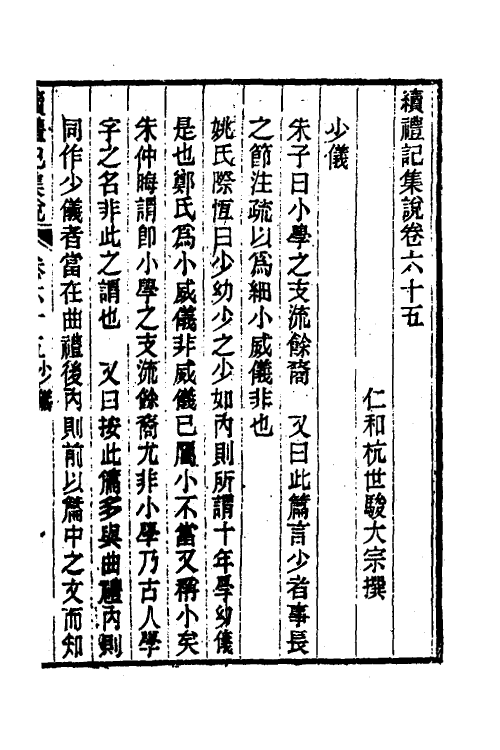 續禮記集說卷六十五
仁和杭世駿大宗撰
少儀
朱子曰小學之支流餘裔　又曰此篇言少者事長
之節注疏以為細小威儀非也
姚氏際恆曰少幼少之少如內則所謂十年學幼儀
是也鄭氏為小威儀非威儀已屬小不當又稱小矣
朱仲晦謂卽小學之支流餘裔尤非小學乃古人學
字之名非此之謂也　又曰按此篇多與曲禮內則
同作少儀者當在曲禮後內則前以篇中之文而知
續禮記集說　卷六十五少儀